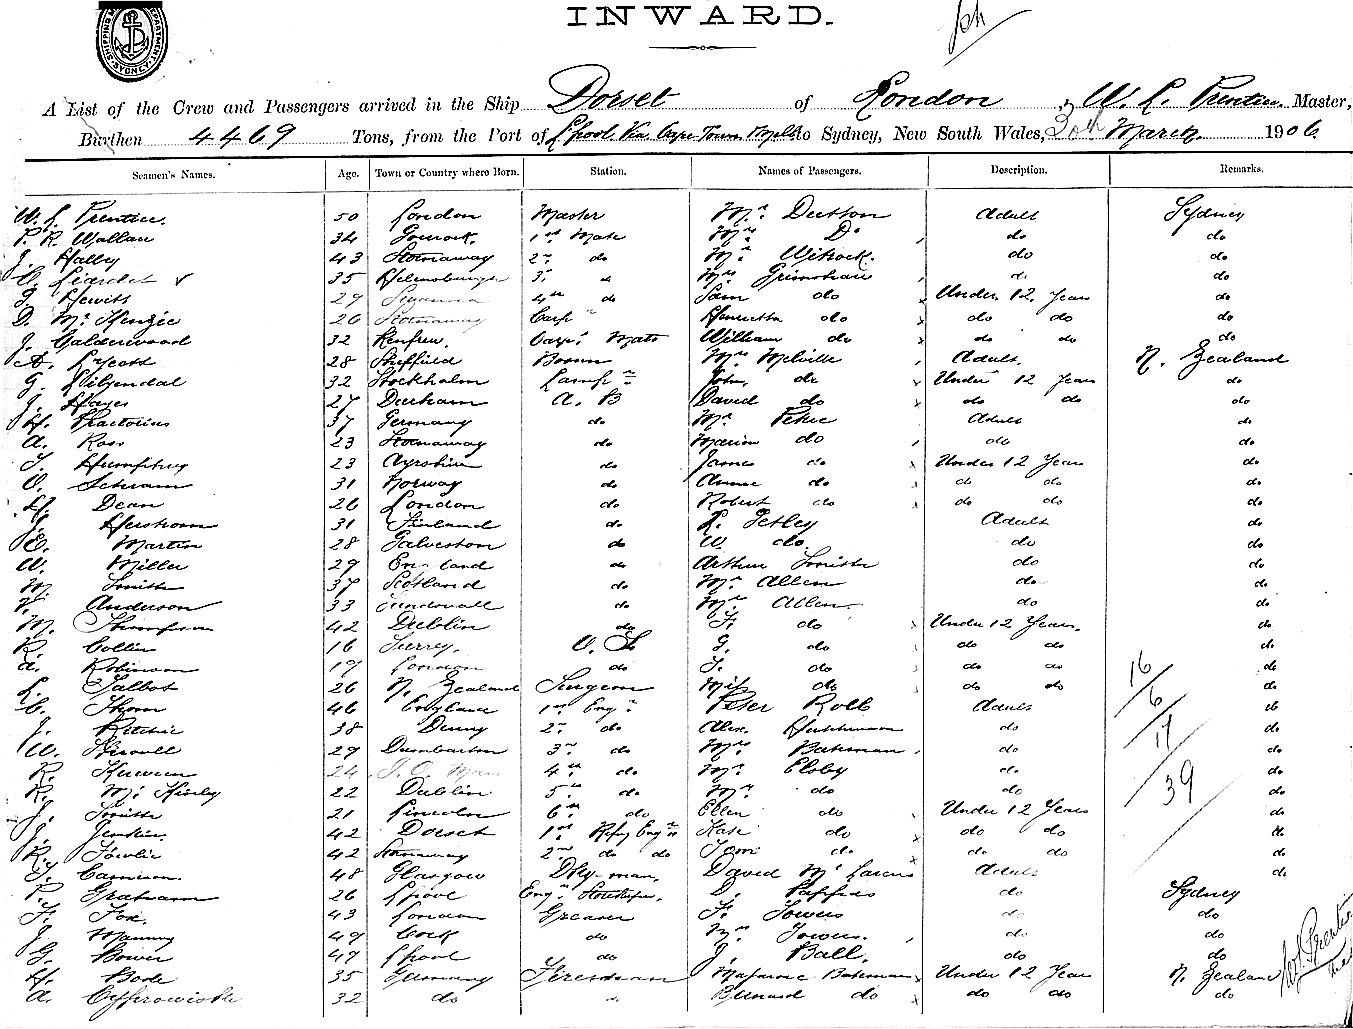 INWARD.
SHIPPING DEPARTMENT SYDNEY
A List of the Crew and Passengers arrived in the Ship Dorset of London, W. L. Prentice Master,
Burthen 4469 Tons, from the Port of L'pool Via Cape Town to Sydney, New South Wales, 30th March 1906
Seamen's Names. Age. Town or Country where Born. Station. Names of Passengers. Description. Remarks.
W. L. Prentice. 50 London Master Mr. Dutton Adult Sydney
Wallace 34 Gourock. 1st Mate Mrs. Do do do
J. Hally 43 Stornaway 2nd do Mr. do do
35 Helensburgh 3rd " Mrs. Grimshaw do do
Hewitt 29 4th do Sam do Under 12 Years do
D. McKenzie 26 Stornaway Carpr Henrietta do do do do
J. Calderwood 32 Renfrew. Carps Mate William do do do do
A. 28 Sheffield Bosun Mrs Melville Adult. N. Zealand
G. Liljendal 32 Stockholm Lamps John do Under 12 Years do
J. Hayes 27 Durham A. B David do do do do
H. Praetorius 37 Germany do Mrs Petrie Adult do
A. Ross 23 Stornaway do Marion do do do
T. Humphrey 23 Ayrshire do James do Under 12 Years do
O. Schram 31 Norway do Annie do do do do
H. Dean 26 London do Robert do do do do
J. 31 Finland do L. Tetley Adult do
Martin 28 Galveston do W do. do do
W. Miller 29 England do Arthur Smith do do
M. Smith 37 Scotland do Mr Allen do do
Anderson 33 do Mrs. Allen. do do
M. Thompson 42 Dublin do F. do Under 12 Years. do
R. Collin 16 Surrey. O. S. G. do do do do
A. Robinson 19 London do J. do do do do
L. Talbot 26 N. Zealand Surgeon Miss do do do do
C. Thom 46 England 1st Engr Peter Robb Adult do
J. Ritchie 38 Denny 2nd do Alex. Hutchinson do do
W. 29 Dumbarton 3rd do Mrs. Bateman do do
R. 24 I. O. Man 4th do Mr. Elsby do do
R. 22 Dublin 5th do Mrs. do do do
J. Smith 21 Lincoln 6th do Ellen do Under 12 Years do
J. Jenkin 42 Dorset 1st Refrg Engr Kate do do do do
R. Fowlie 42 Stornaway 2nd do do Tom do do do do
Cameron 48 Glasgow Dky-man. David McLaren Adult do
P. Graham 26 L'pool Engr. Storekeeper. D. Pappas do Sydney
F. Fox. 43 London Greaser F. Towers do do
J. Manning 49 Cork do Mrs. Towers. do do
G. Bower 47 L'pool do J. Ball. do do
H. Bode 35 Germany Fireman Marjorie Bateman Under 12 Year N. Zealand
A. 32 do do Bernard do do do do
16
6
17
39